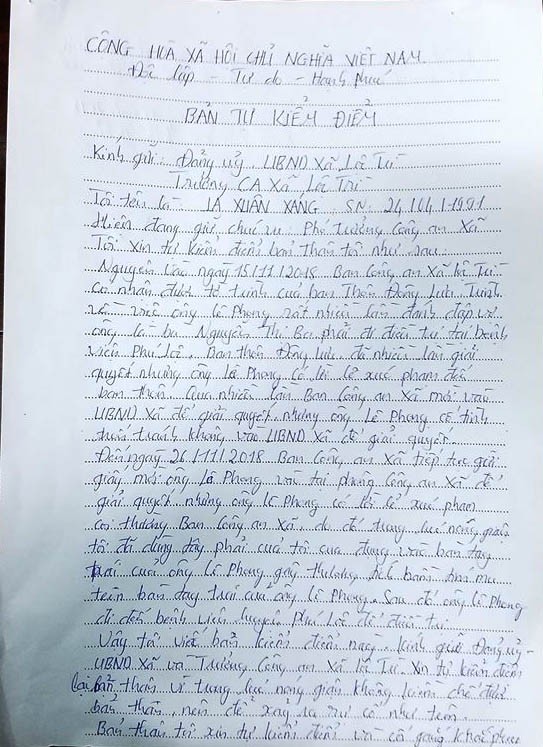 CÔNG HOÀ XÃ HỘI CHỦ NGHĨA VIỆT NAM
Độc lập - Tự do - Hạnh phúc
BẢN TỰ KIỂM ĐIỂM
Kính gửi: Đảng uỷ, UBND Xã Lê Trì
Trưởng CA Xã Lê Trì
Tôi tên là LA XUÂN XÁNG. SN: 24/04/1991
Hiện đang giữ chức vụ: Phó trưởng công an xã
Tôi xin tự kiểm điểm bản thân tôi như sau:
Nguyên vào ngày 15/11/2018 Ban công an xã
có nhận được tờ trình của ban Thôn Đồng
về việc ông Lê Phong rất nhiều lần đánh đập vợ
ông là bà Nguyễn Thị Ba phải đi điều trị tại bệnh
viện Phù. Ban thôn Đồng đã nhiều lần giải
quyết nhưng ông Lê Phong có lời lẽ xúc phạm đến
ban thôn. Qua nhiều lần Ban công an xã mời vào
UBND xã để giải quyết, nhưng ông Lê Phong cố tình
trốn tránh không vào UBND xã để giải quyết.
Đến ngày 26/11/2018 Ban công an xã tiếp tục gửi
giấy mời ông Lê Phong vào tại phòng công an xã để
giải quyết nhưng ông Lê Phong có lời lẽ xúc phạm
coi thường Ban công an xã, do đó trong lúc nóng giận
tôi đã dùng tay phải của tôi vào bàn tay
trái của ông Lê Phong gây thương tích bầm tím
trên bàn tay trái của ông Lê Phong. Sau đó ông Lê Phong
đi đến bệnh viện huyện Phù để điều trị
Vậy tôi viết bản kiểm điểm này, kính gửi Đảng uỷ -
UBND xã và Trưởng công an xã. Xin tự kiểm điểm
lại bản thân vì trong lúc nóng giận không kiềm chế được
bản thân, nên để xảy ra sự cố như trên.
Bản thân tôi xin tự kiểm điểm và cố gắng khắc phục